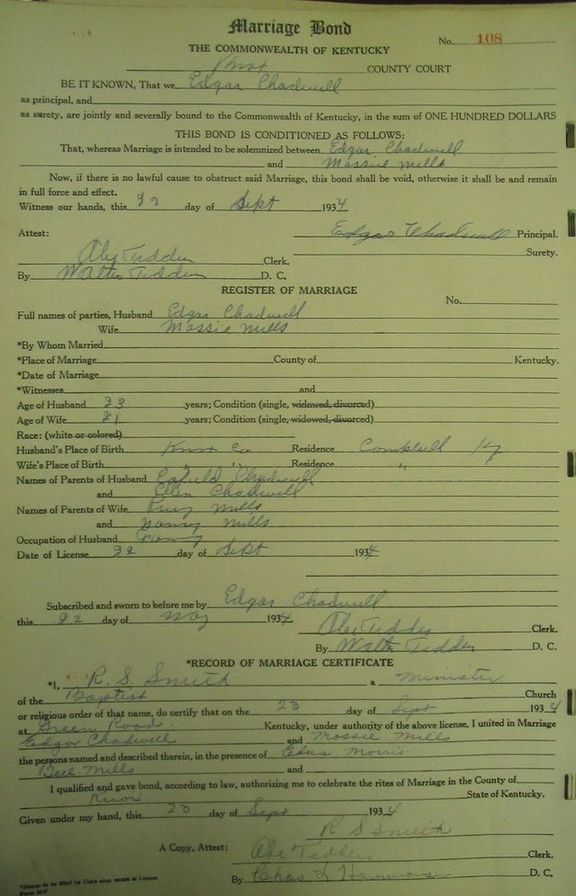 Marriage Bond
No. 108
THE COMMONWEALTH OF KENTUCKY
Knox COUNTY COURT
BE IT KNOWN, That we Edgar Chadwell
as principal, and
as surety, are jointly and severally bound to the Commonwealth of Kentucky, in the sum of ONE HUNDRED DOLLARS
THIS BOND IS CONDITIONED AS FOLLOWS:
That, whereas Marriage is intended to be solemnized between Edgar Chadwell
and Mossie Mills
Now, if there is no lawful cause to obstruct said Marriage, this bond shall be void, otherwise it shall be and remain
in full force and effect.
Witness our hands, this 22 day of Sept 1934
Attest: Edgar Chadwell Principal.
Surety.
Abe Tedder Clerk.
By Walter Tedder D. C.
REGISTER OF MARRIAGE
No.
Full names of parties, Husband Edgar Chadwell
Wife Mossie Mills
*By Whom Married
*Place of Marriage County of Kentucky.
*Date of Marriage
*Witnesses and
Age of Husband 23 years; Condition (single, widowed, divorced)
Age of Wife 21 years; Condition (single, widowed, divorced)
Race: (white or colored)
Husband's Place of Birth Knox Co Residence Ky
Wife's Place of Birth " " Residence "
Names of Parents of Husband Chadwell
and Ellen Chadwell
Names of Parents of Wife Mills
and Nancy Mills
Occupation of Husband
Date of License 22 day of Sept 1934
Subscribed and sworn to before me by Edgar Chadwell
this 22 day of 1934
Abe Tedder Clerk.
By Walter Tedder D. C.
*RECORD OF MARRIAGE CERTIFICATE
*I, R. S. Smith a minister
of the Baptist Church
or religious order of that name, do certify that on the 23 day of Sept 1934
at Green Road Kentucky, under authority of the above license, I united in Marriage
Edgar Chadwell and Mossie Mills
the persons named and described therein, in the presence of Edna Morris
Mills and
I qualified and gave bond, according to law, authorizing me to celebrate the rites of Marriage in the County of
Knox State of Kentucky.
Given under my hand, this 23 day of Sept 1934
R S Smith
A Copy, Attest: Abe Tedder Clerk.
By Chas D. C.